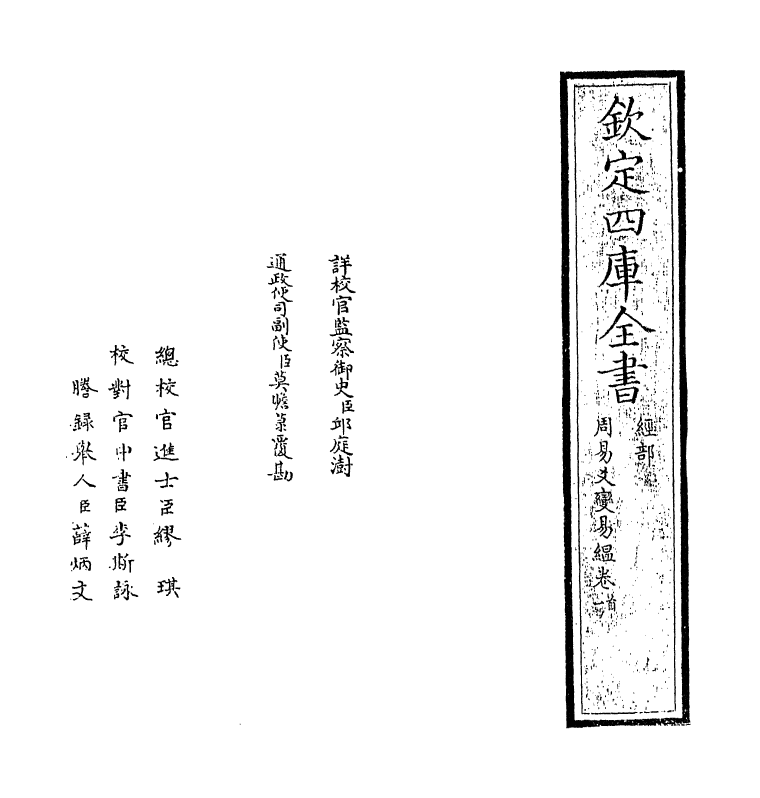 欽定四庫全書
經部
周易爻變易縕卷首
詳校官監察御史臣邱庭澍
通政使司副使臣莫瞻菉覆勘
總校官進士臣繆琪
校對官中書臣李斯詠
謄錄舉人臣薛炳文